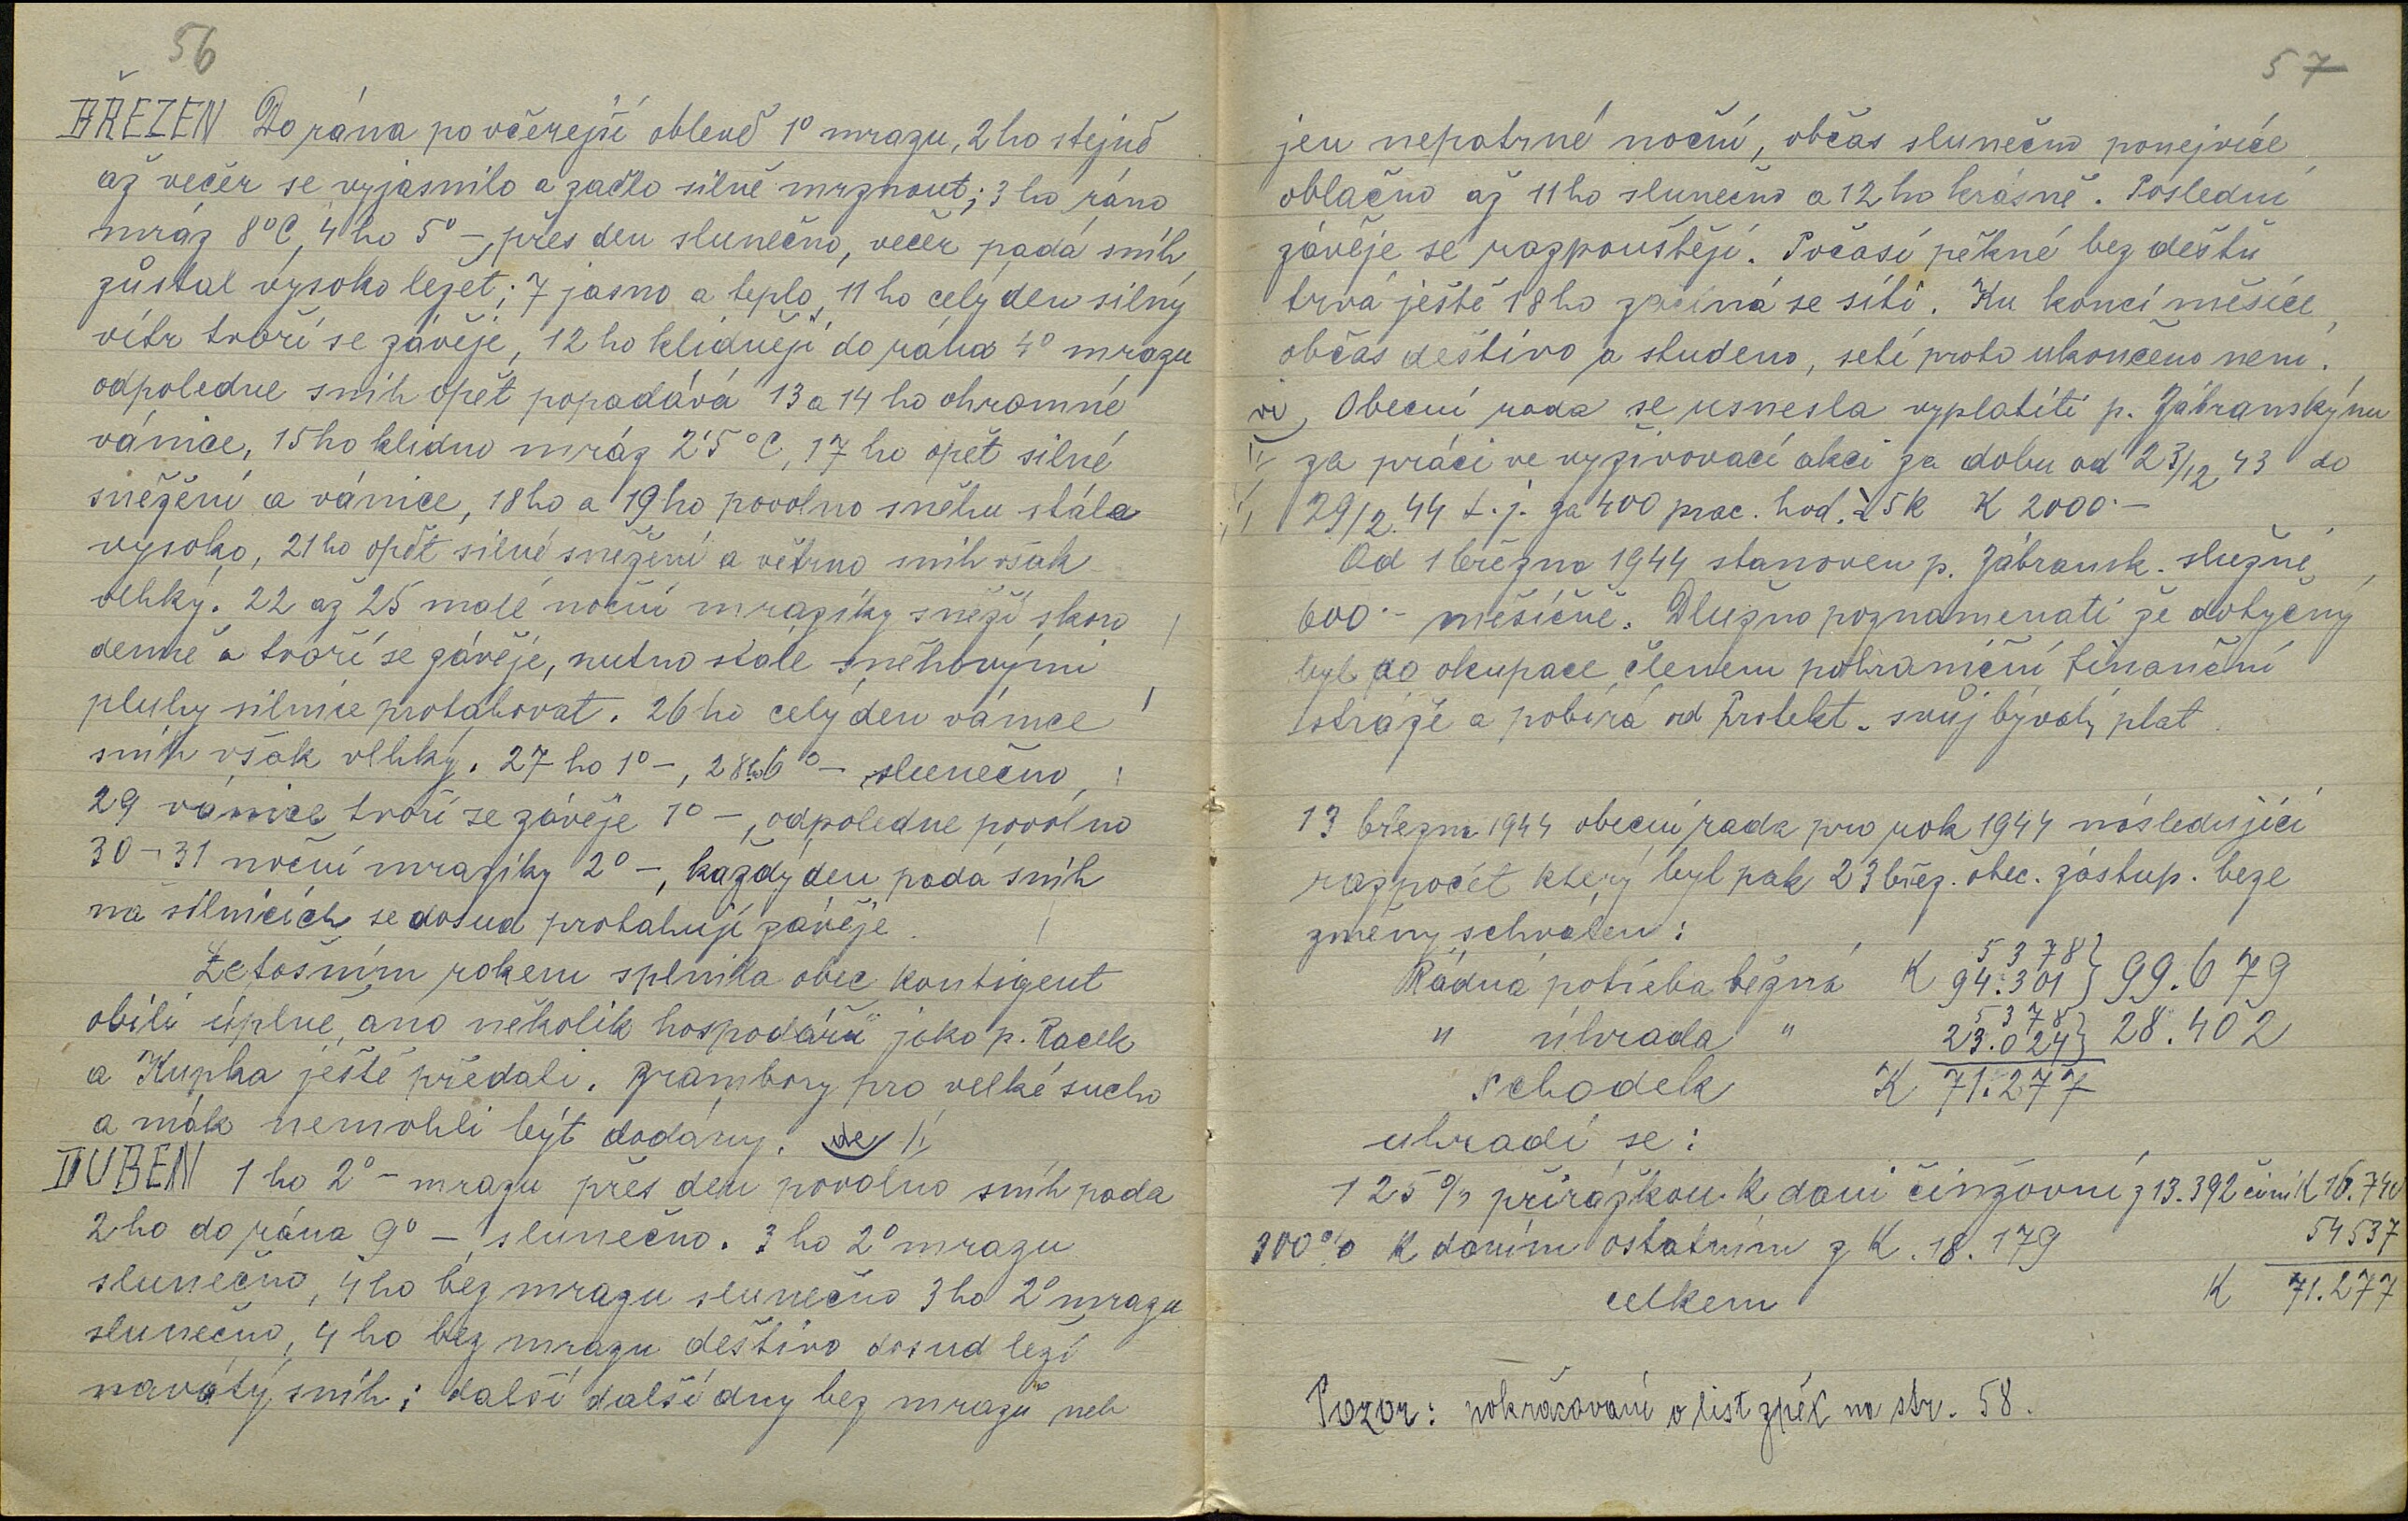 56
BŘEZEN Do rána po včerejší oblevě 1° mrazu, 2ho stejně
až večer se vyjasnilo a začlo silně mrznout; 3ho ráno
mráz 8°C, 4ho 5°-, přes den slunečno, večer padá sníh,
zůstal vysoko ležet; 7 jasno a teplo, 11ho celý den silný
vítr tvoří se závěje, 12ho klidněji do rána 4° mrazu
odpoledne sníh opět popadává 13 a 14ho ohromné
vánice, 15ho klidno mráz 2'5°C, 17ho opět silné
sněžení a vánice, 18ho a 19ho povolno sněhu stále
vysoko, 21ho opět silné sněžení a větrno sníh však
vlhký. 22 až 25 malé noční mrazíky sněží skoro
denně a tvoří se závěje, nutno stále sněhovými
pluhy silnice protahovat. 26ho celý den vánice
sníh však vlhký. 27ho 1°-, 28ho 6°- slunečno,
29 vánice tvoří se závěje 1°-, odpoledne povolno
30-31 noční mrazíky 2°-, každý den padá sníh
na silnicích se dosud protahují závěje.
Letošním rokem splnila obec kontigent
obilí úplně, ano několik hospodářů jako p. Racek
a Kupka ještě předali. Brambory pro velké sucho
a mák nemohli být dodány. vi
DUBEN 1ho 2°- mrazu přes den povolno sníh padá
2ho do rána 9°-, slunečno. 3ho 2° mrazu
slunečno, 4ho bez mrazu slunečno 3ho 2° mrazu
slunečno, 4ho bez mrazu deštivo dosud leží
navátý sníh; další další dny bez mrazů neb
57
jen nepatrné noční, občas slunečno ponejvíce
oblačno až 11ho slunečno a 12ho krásně. Poslední
závěje se rozpouštějí. Počasí pěkné bez deště
trvá ještě 18ho začíná se síti. Ku konci měsíce
občas deštivo a studeno, setí proto ukončeno není.
vi, Obecní rada se usnesla vyplatiti p. Zábranskýmu
za práci ve vyživovací akci za dobu od 23/12 43 do
29/2. 44 t.j. za 400 prac. hod. à 5K K 2000·-
Od 1 března 1944 stanoven p. Zábransk. služné
600·- měsíčně. Dlužno poznamenati že dotyčný
byl do okupace členem pohraniční finanční
stráže a pobírá od Protekt. svůj bývalý plat.
13 března 1944 obecní rada pro rok 1944 následující
rozpočet který byl pak 23 břez. obec. zástup. beze
změny schválen:
5378
Řádná potřeba běžná K 94.301 } 99.679
5378
" úhrada " 23.024 } 28.402
Schodek K 71.277
uhradí se:
125% přirážkou k dani činžovní z 13.392 činí K 16.740
300% k daním ostatním z K. 18.179 54537
celkem K 71.277
Pozor: pokračování o list zpět na str. 58.